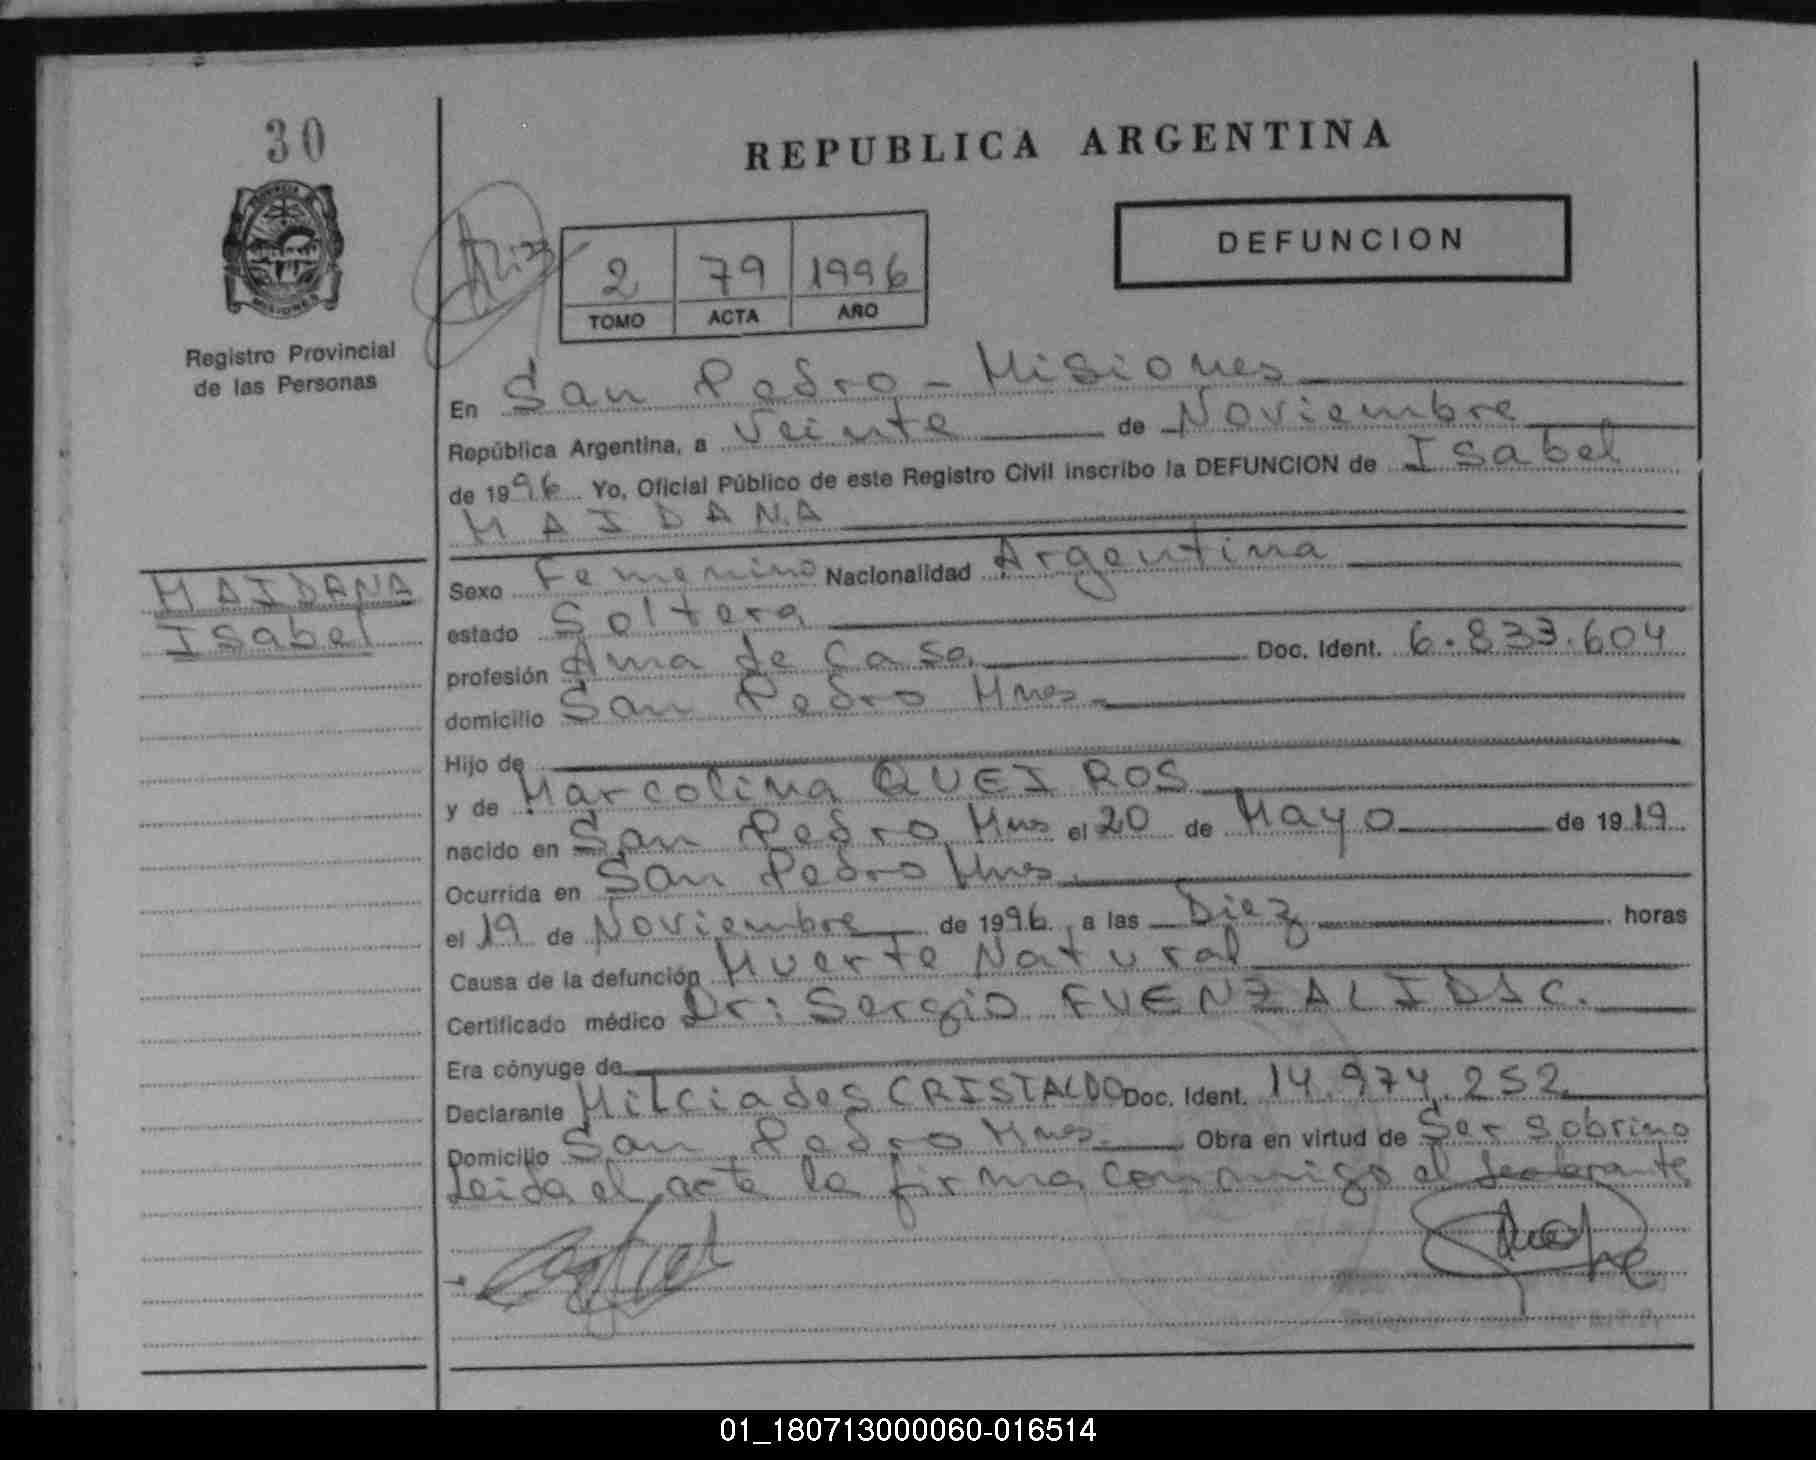 30
REPUBLICA ARGENTINA
DEFUNCION
2 79 1996
TOMO ACTA AÑO
Registro Provincial
de las Personas
En San Pedro - Misiones
República Argentina, a Veinte de Noviembre
de 1996 Yo, Oficial Público de este Registro Civil inscribo la DEFUNCION de Isabel
MAIDANA
MAIDANA
Isabel
Sexo Femenino Nacionalidad Argentina
estado Soltera
profesión Ama de Casa Doc. Ident. 6.833.604
domicilio San Pedro Mnes.
Hijo de
y de Marcolina QUEIROS
nacido en San Pedro Mns el 20 de Mayo de 1919
Ocurrida en San Pedro Mns.
el 19 de Noviembre de 1996, a las Diez horas
Causa de la defunción Muerte Natural
Certificado médico Dr: Sergio FUENZALIDA C.
Era cónyuge de
Declarante Milciades CRISTALDO Doc. Ident. 14.974.252
Domicilio San Pedro Mnes. Obra en virtud de Ser Sobrino
Leida el acta la firma conmigo el declarante
01_180713000060-016514